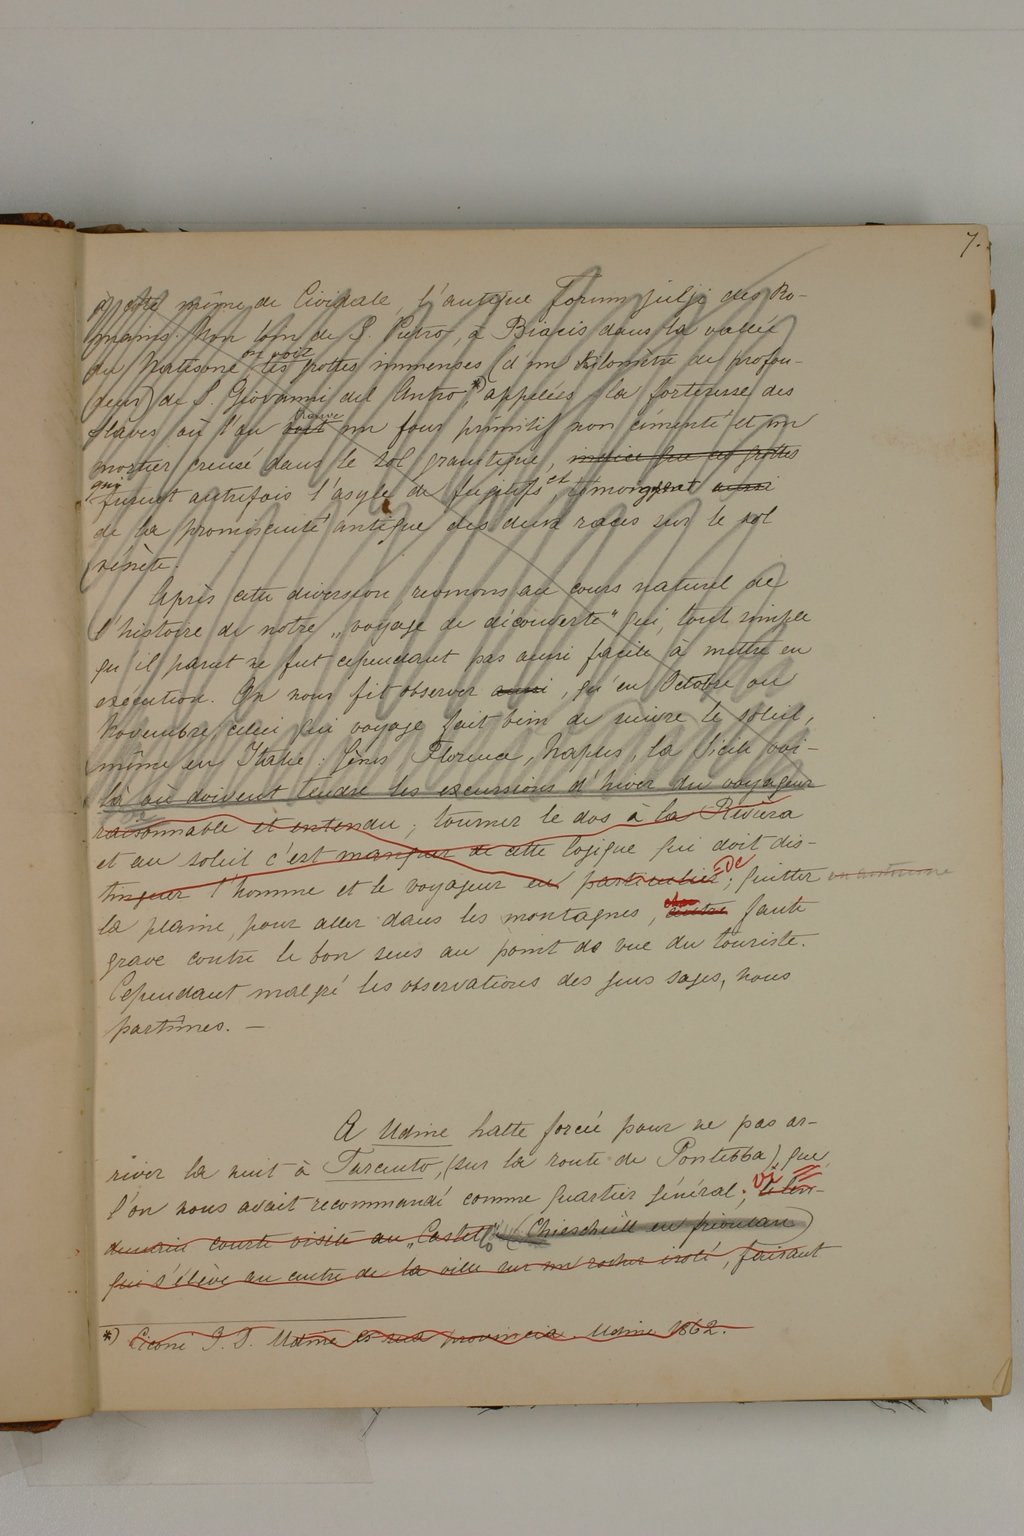 7.
à côté même de Cividale, l'antique Forum julji des Ro-
mains. Non loin de S. Pietro, à Biacis dans la vallée
du Natisone, on voit les grottes immenses (d'un kilomètre de profon-
deur) de S. Giovanni del Antro *) appelées la forteresse des
Slaves où l'on voit trouve un four primitif non cimenté et un
mortier creusé dans le sol granitique, que ces grottes
qui furent autrefois l'asyle de fugitifs et aussi
de la promiscuité antique des deux races sur le sol
vénète.
Après cette diversion, revenons au cours naturel de
l'histoire de notre „voyage de découverte" qui, tout simple
qu'il parut ne fut cependant pas aussi facile à mettre en
exécution. On nous fit observer aussi, qu'en Octobre ou
Novembre celui qui voyage fait bien de suivre le soleil,
même en Italie: Gênes Florence, Naples, la Sicile voi-
là où doivent tendre les excursions d'hiver du voyageur
raisonnable et entendu; tourner le dos à la Riviera
et au soleil c'est manquer de cette logique qui doit dis-
tinguer l'homme et le voyageur en particulier; quitter en automne
la plaine, pour aller dans les montagnes, autre faute
grave contre le bon sens au point de vue du touriste.
Cependant malgré les observations des gens sages, nous
partîmes. —
A Udine halte forcée pour ne pas ar-
river la nuit à Tarcento, (sur la route de Pontebba), que
l'on nous avait recommandé comme quartier général; le len-
demain courte visite au „Castello" (Chieschiell en frioulan)
qui s'élève au centre de la ville sur un rocher isolé, faisant
*) Ciconi I. D. Udine e sua provincia. Udine 1862.